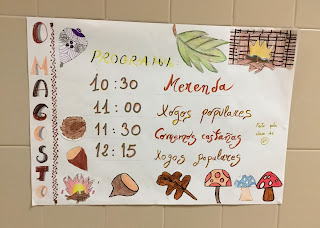 O MAGOSTO
PROGRAMA
10:30 Merenda
11:00 Xogos populares
11:30 Comemos castañas
12:15 Xogos populares